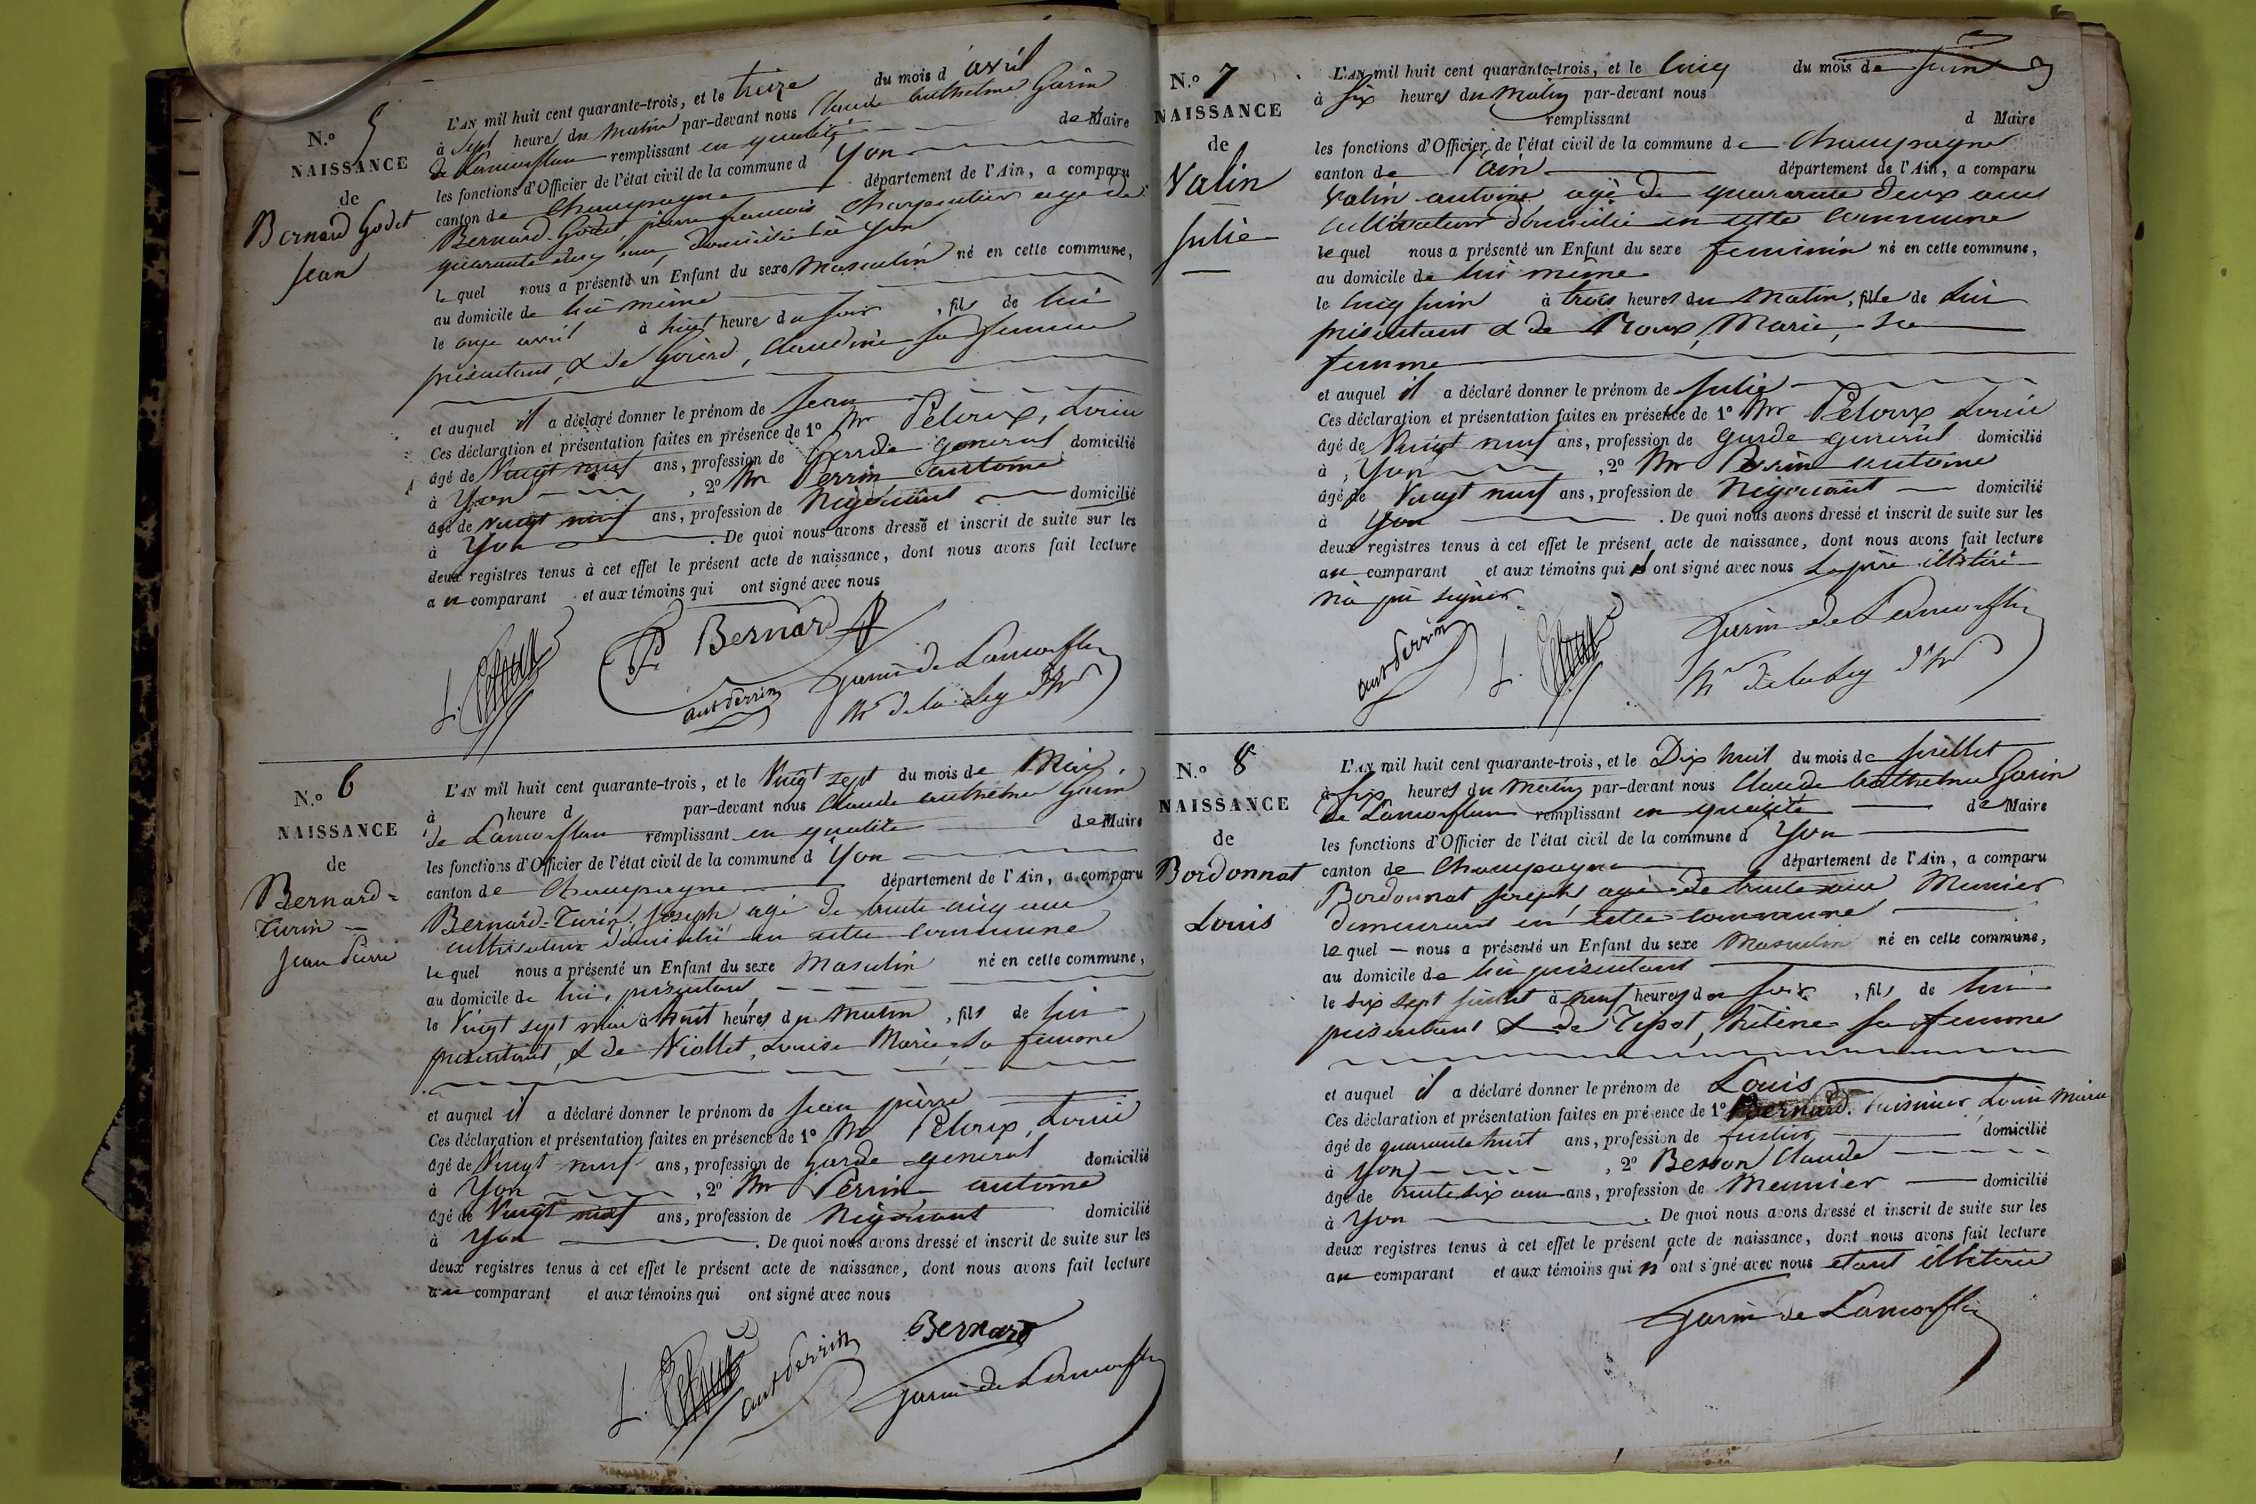 N.º 5
NAISSANCE
de
Bernard Godet
Jean
L'AN mil huit cent quarante-trois, et le treize du mois d'avril
à sept heures du matin par-devant nous Claude Anthelme Garin
de Lamorflan remplissant en qualité de Maire
les fonctions d'Officier de l'état civil de la commune d Yon
canton de Champagne département de l'Ain, a comparu
Bernard-Godet pierre françois Charpentier agé de
quarante ans, domicilié à Yon
le quel nous a présenté un Enfant du sexe Masculin né en cette commune,
au domicile de lui même
le onze avril à huit heure du soir, fils de lui
présentant, & de Claudine sa femme
et auquel il a déclaré donner le prénom de Jean
Ces déclaration et présentation faites en présence de 1º Mr Peloux, Louis
âgé de Vingt neuf ans, profession de Garde general domicilié
à Yon, 2º Mr Perrin antoine
âgé de vingt neuf ans, profession de Négociant domicilié
à Yon. De quoi nous avons dressé et inscrit de suite sur les
deux registres tenus à cet effet le présent acte de naissance, dont nous avons fait lecture
au comparant et aux témoins qui ont signé avec nous
L. Peloux
Bernard
ant Perrin
Garin de Lamorflan
N.º 6
NAISSANCE
de
Bernard-
Turin
Jean Pierre
L'AN mil huit cent quarante-trois, et le Vingt sept du mois de Mai
à heure d par-devant nous Claude anthelme Garin
de Lamorflan remplissant en qualité de Maire
les fonctions d'Officier de l'état civil de la commune d Yon
canton de Champagne département de l'Ain, a comparu
Bernard-Turin, Joseph agé de trente cinq ans
cultivateur domicilié en cette commune
le quel nous a présenté un Enfant du sexe Masculin né en cette commune,
au domicile de lui, présentant
le Vingt sept mai à huit heures du Matin, fils de lui
présentant, & de Niollet, Louise Marie, sa femme
et auquel il a déclaré donner le prénom de Jean pierre
Ces déclaration et présentation faites en présence de 1º Mr Peloux, Louis
âgé de Vingt neuf ans, profession de Garde general domicilié
à Yon, 2º Mr Perrin antoine
âgé de Vingt neuf ans, profession de Négociant domicilié
à Yon. De quoi nous avons dressé et inscrit de suite sur les
deux registres tenus à cet effet le présent acte de naissance, dont nous avons fait lecture
au comparant et aux témoins qui ont signé avec nous
Bernard
L. Peloux
ant Perrin
Garin de Lamorflan
N.º 7
NAISSANCE
de
Valin
Julie
L'AN mil huit cent quarante-trois, et le cinq du mois de Juin
à six heures du Matin par-devant nous
remplissant d Maire
les fonctions d'Officier de l'état civil de la commune de Champagne
canton de l'ain département de l'Ain, a comparu
Valin antoine agé de quarante deux ans
cultivateur domicilié en cette commune
le quel nous a présenté un Enfant du sexe feminin né en cette commune,
au domicile de lui même
le cinq Juin à trois heures du Matin, fille de Lui
présentant & de Roux, Marie, sa
femme
et auquel il a déclaré donner le prénom de Julie
Ces déclaration et présentation faites en présence de 1º Mr Peloux Louis
âgé de Vingt neuf ans, profession de garde general domicilié
à Yon, 2º Mr Perrin antoine
âgé de Vingt neuf ans, profession de Négociant domicilié
à Yon. De quoi nous avons dressé et inscrit de suite sur les
deux registres tenus à cet effet le présent acte de naissance, dont nous avons fait lecture
au comparant et aux témoins qui ont signé avec nous Le père illétéré
n'a pu signer
ant Perrin
L. Peloux
Garin de Lamorflan
N.º 8
NAISSANCE
de
Bordonnat
Louis
L'AN mil huit cent quarante-trois, et le Dix huit du mois de Juillet
à six heures du Matin par-devant nous Claude Anthelme Garin
de Lamorflan remplissant en qualité de Maire
les fonctions d'Officier de l'état civil de la commune d Yon
canton de Champagne département de l'Ain, a comparu
Bordonnat Joseph agé de trente ans Meunier
demeurant en cette commune
le quel nous a présenté un Enfant du sexe Masculin né en cette commune,
au domicile de lui présentant
le dix sept juillet à neuf heures du soir, fils de lui
présentant & de Tissot, héléne sa femme
et auquel il a déclaré donner le prénom de Louis
Ces déclaration et présentation faites en présence de 1º Bernard. Louis Marie
âgé de quarante huit ans, profession de domicilié
à Yon, 2º Besson Claude
âgé de trente six ans ans, profession de Meunier domicilié
à Yon. De quoi nous avons dressé et inscrit de suite sur les
deux registres tenus à cet effet le présent acte de naissance, dont nous avons fait lecture
au comparant et aux témoins qui n'ont signé avec nous etant illétéré
Garin de Lamorflan